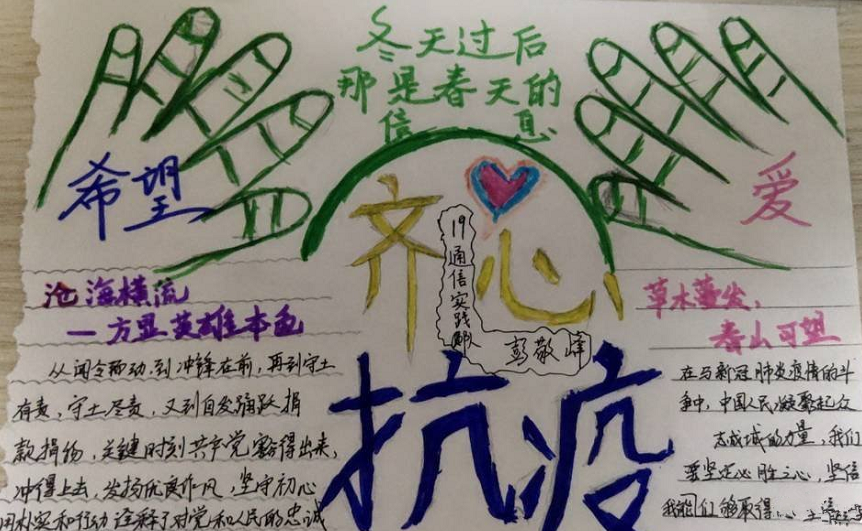 冬天过后
那是春天的
信息
希望
爱
齐心
19通信实践部
彭敬峰
抗疫
沧海横流
一方显英雄本色
从闻令而动,到冲锋在前,再到守土
有责,守土尽责,又到自发踊跃捐
款捐物,关键时刻共产党豁得出来,
冲得上去,发扬优良作风,坚守初心
用朴实和行动诠释了对党和人民的忠诚
草木蔓发,
春山可望
在与新冠肺炎疫情的斗
争中,中国人民凝聚起众
志成城的力量,我们
要坚定必胜之心,坚信
我们能够取得